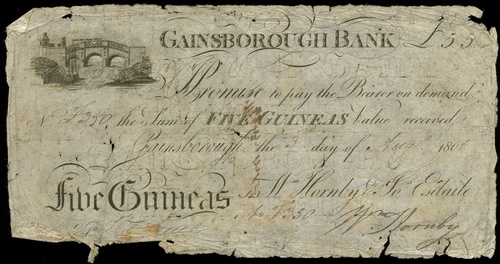 GAINSBOROUGH BANK £5 5
I Promise to pay the Bearer on demand
No the Sum of FIVE GUINEAS Value received
Gainsborough, the day of 180
Five Guineas For Wm Hornby & Jos Esdaile
Wm Hornby